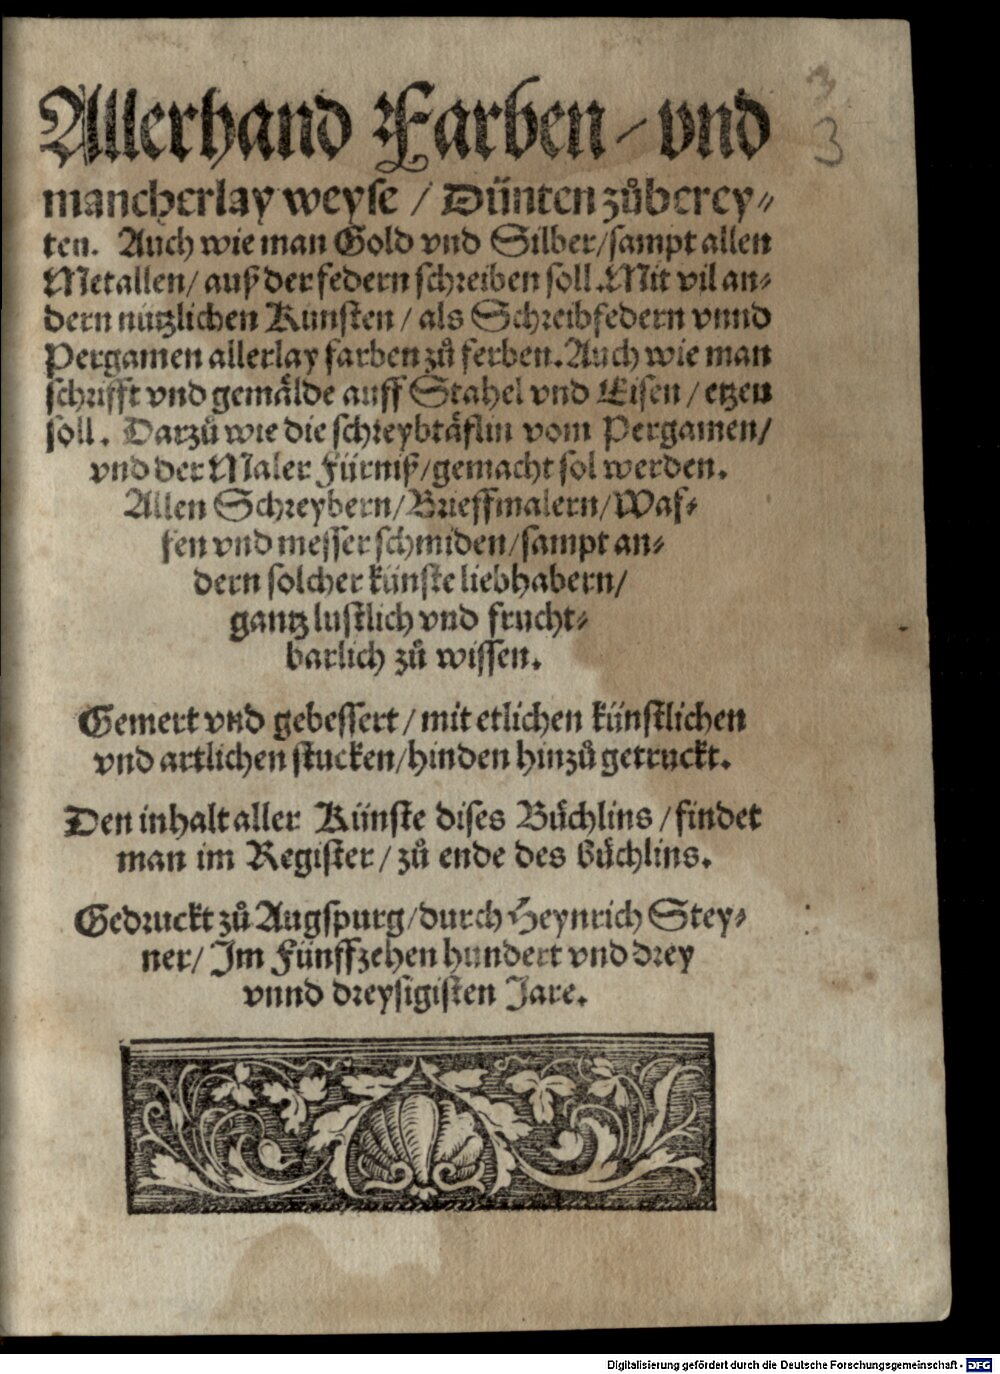 Allerhand Farben / vnd
mancherlay weyse / Dünten zůberey⸗
ten. Auch wie man Gold vnd Silber/sampt allen
Metallen/ auß der federn schreiben soll. Mit vil an⸗
dern nützlichen Künsten / als Schreibfedern vnnd
Pergamen allerlay farben zů ferben. Auch wie man
schrifft vnd gemälde auff Stahel vnd Eisen / etzen
soll. Darzů wie die schreybtäflin vom Pergamen/
vnd der Maler Fürniß/gemacht sol werden.
Allen Schreybern/Brieffmalern/Waf⸗
fen vnd messer schmiden/sampt an⸗
dern solcher künste liebhabern/
gantz lustlich vnd frucht⸗
barlich zů wissen.
Gemert vnd gebessert/mit etlichen künstlichen
vnd artlichen stucken/hinden hinzů getruckt.
Den inhalt aller Künste dises Büchlins /findet
man im Register/ zů ende des büchlins.
Gedruckt zů Augspurg/durch Heynrich Stey⸗
ner/ Im Fünffzehen hundert vnd drey
vnnd dreysigisten Jare.
3
3
Digitalisierung gefördert durch die Deutsche Forschungsgemeinschaft - DFG